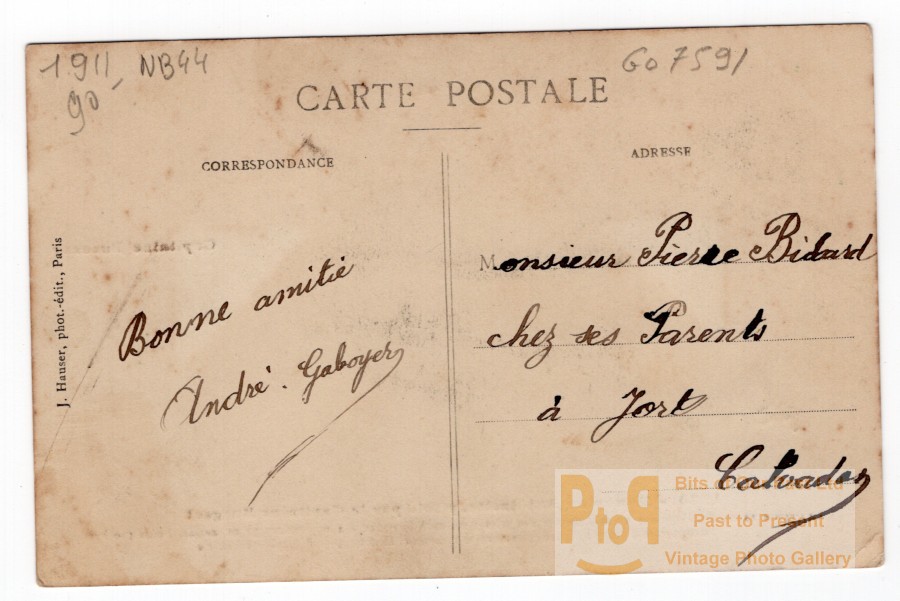 1911 NB44
90
Go 7591
CARTE POSTALE
CORRESPONDANCE
ADRESSE
J. Hauser, phot.-édit., Paris
Bonne amitié
André. Gaboyer
Monsieur Pierre Bidard
chez ses Parents
à Jort
Calvados
PtoP
Bits of
Ltd
Past to Present
Vintage Photo Gallery